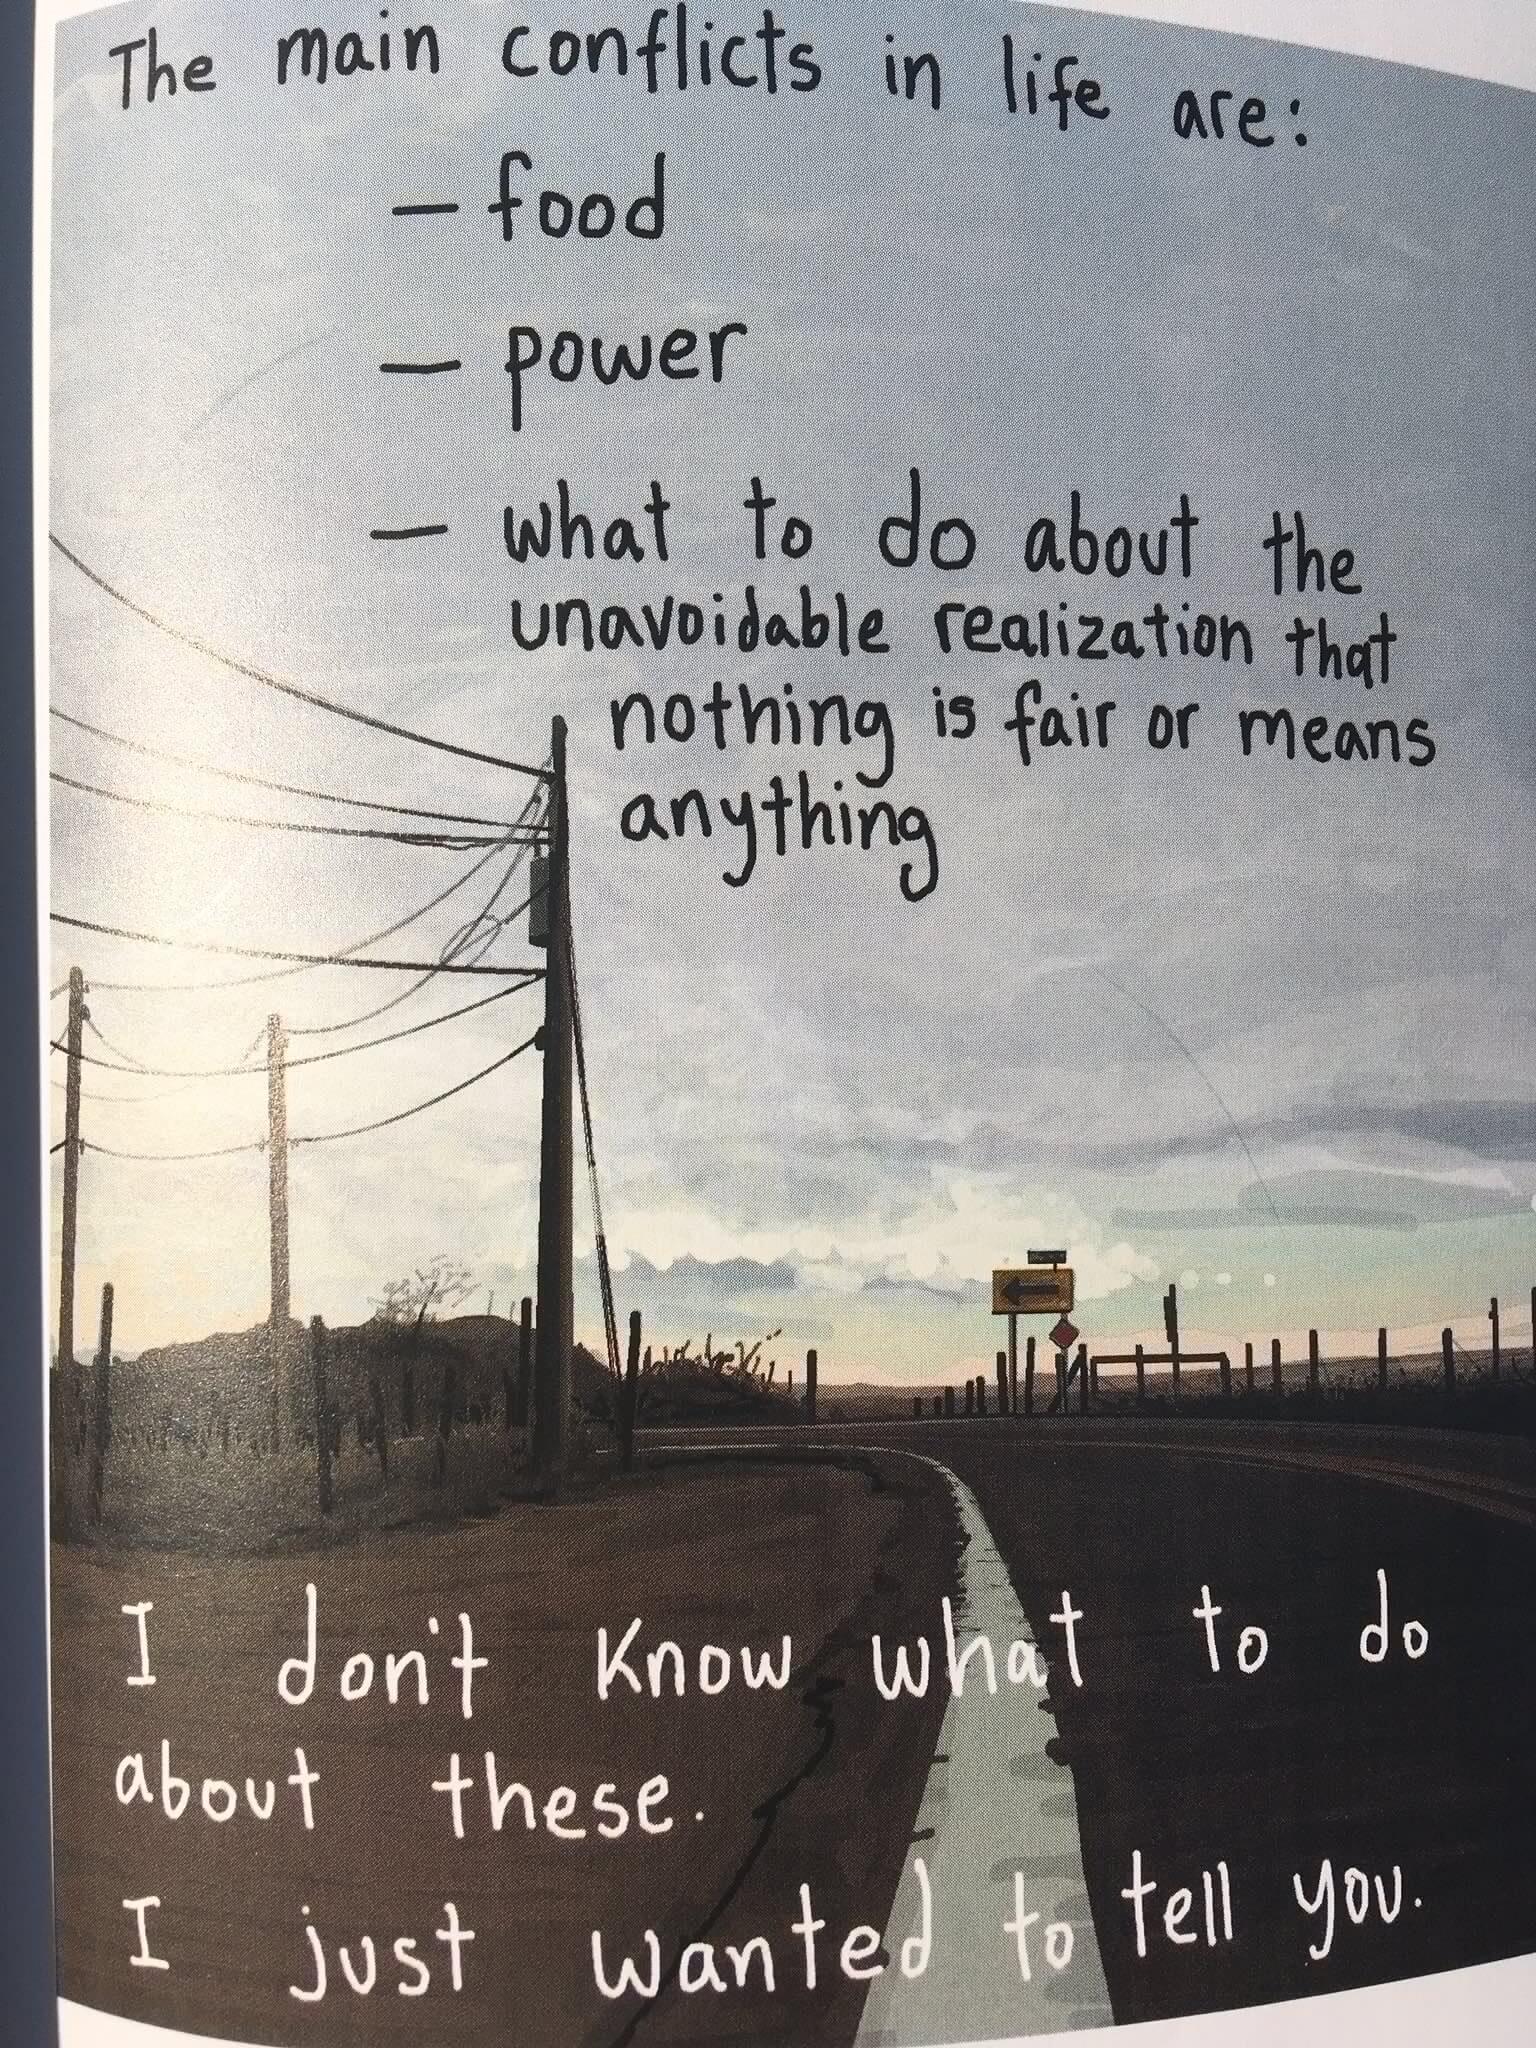 The main conflicts in life are:
– food
– power
– what to do about the
unavoidable realization that
nothing is fair or means
anything
I don't know what to do
about these.
I just wanted to tell you.